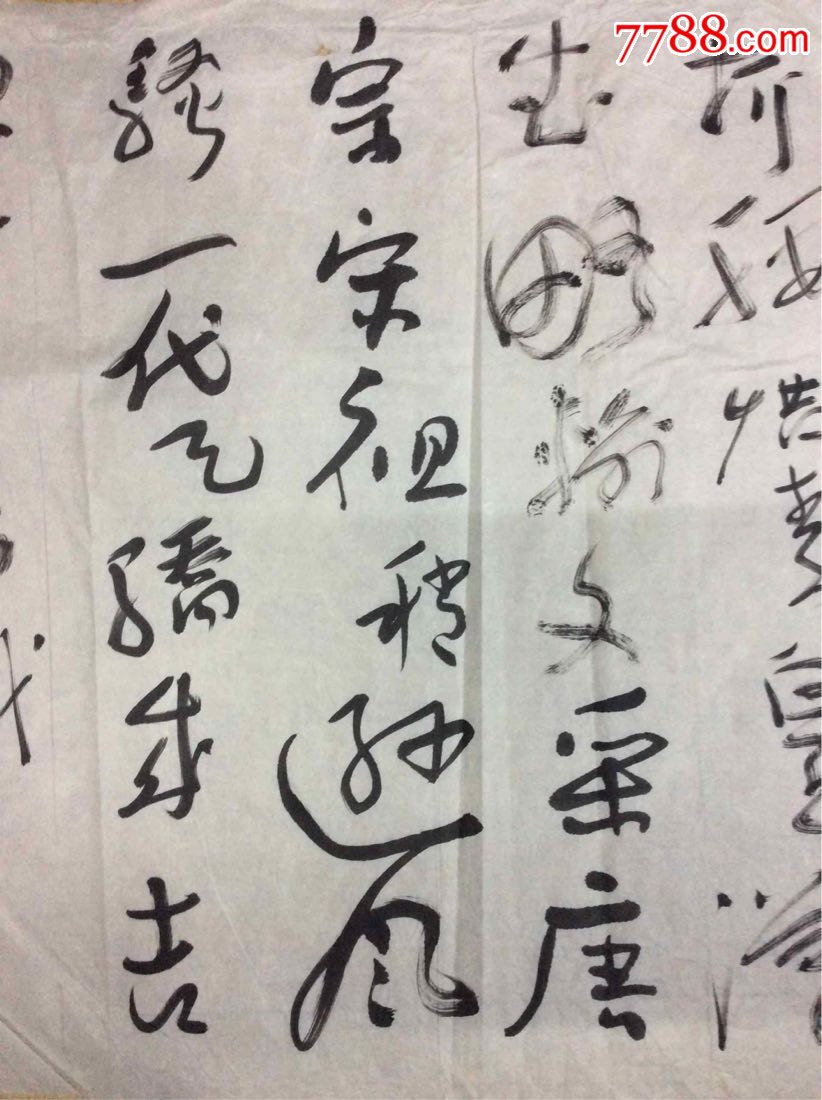 7788.com
折腰惜秦皇漢
武略輸文采唐
宗宋祖稍遜風
騷一代天驕成吉